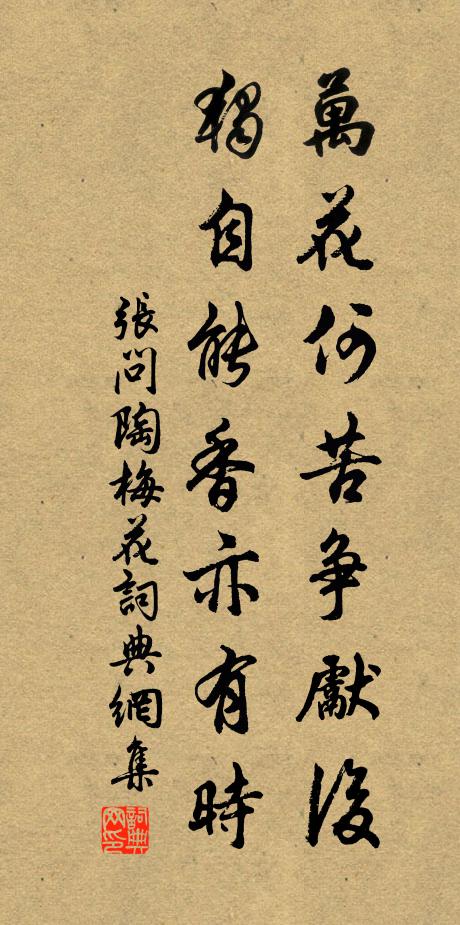 萬花何苦争獻後
獨自能香亦有時
張問陶梅花詞典網集
詞典网印